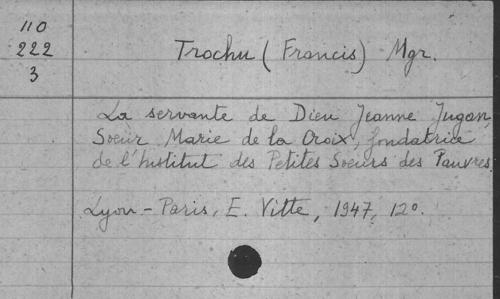 110
222
3
Trochu (Francis) Mgr.
La servante de Dieu Jeanne Jugan,
Soeur Marie de la Croix, fondatrice
de l'institut des Petites Soeurs des Pauvres.
Lyon - Paris, E. Vitte, 1947, 12°.